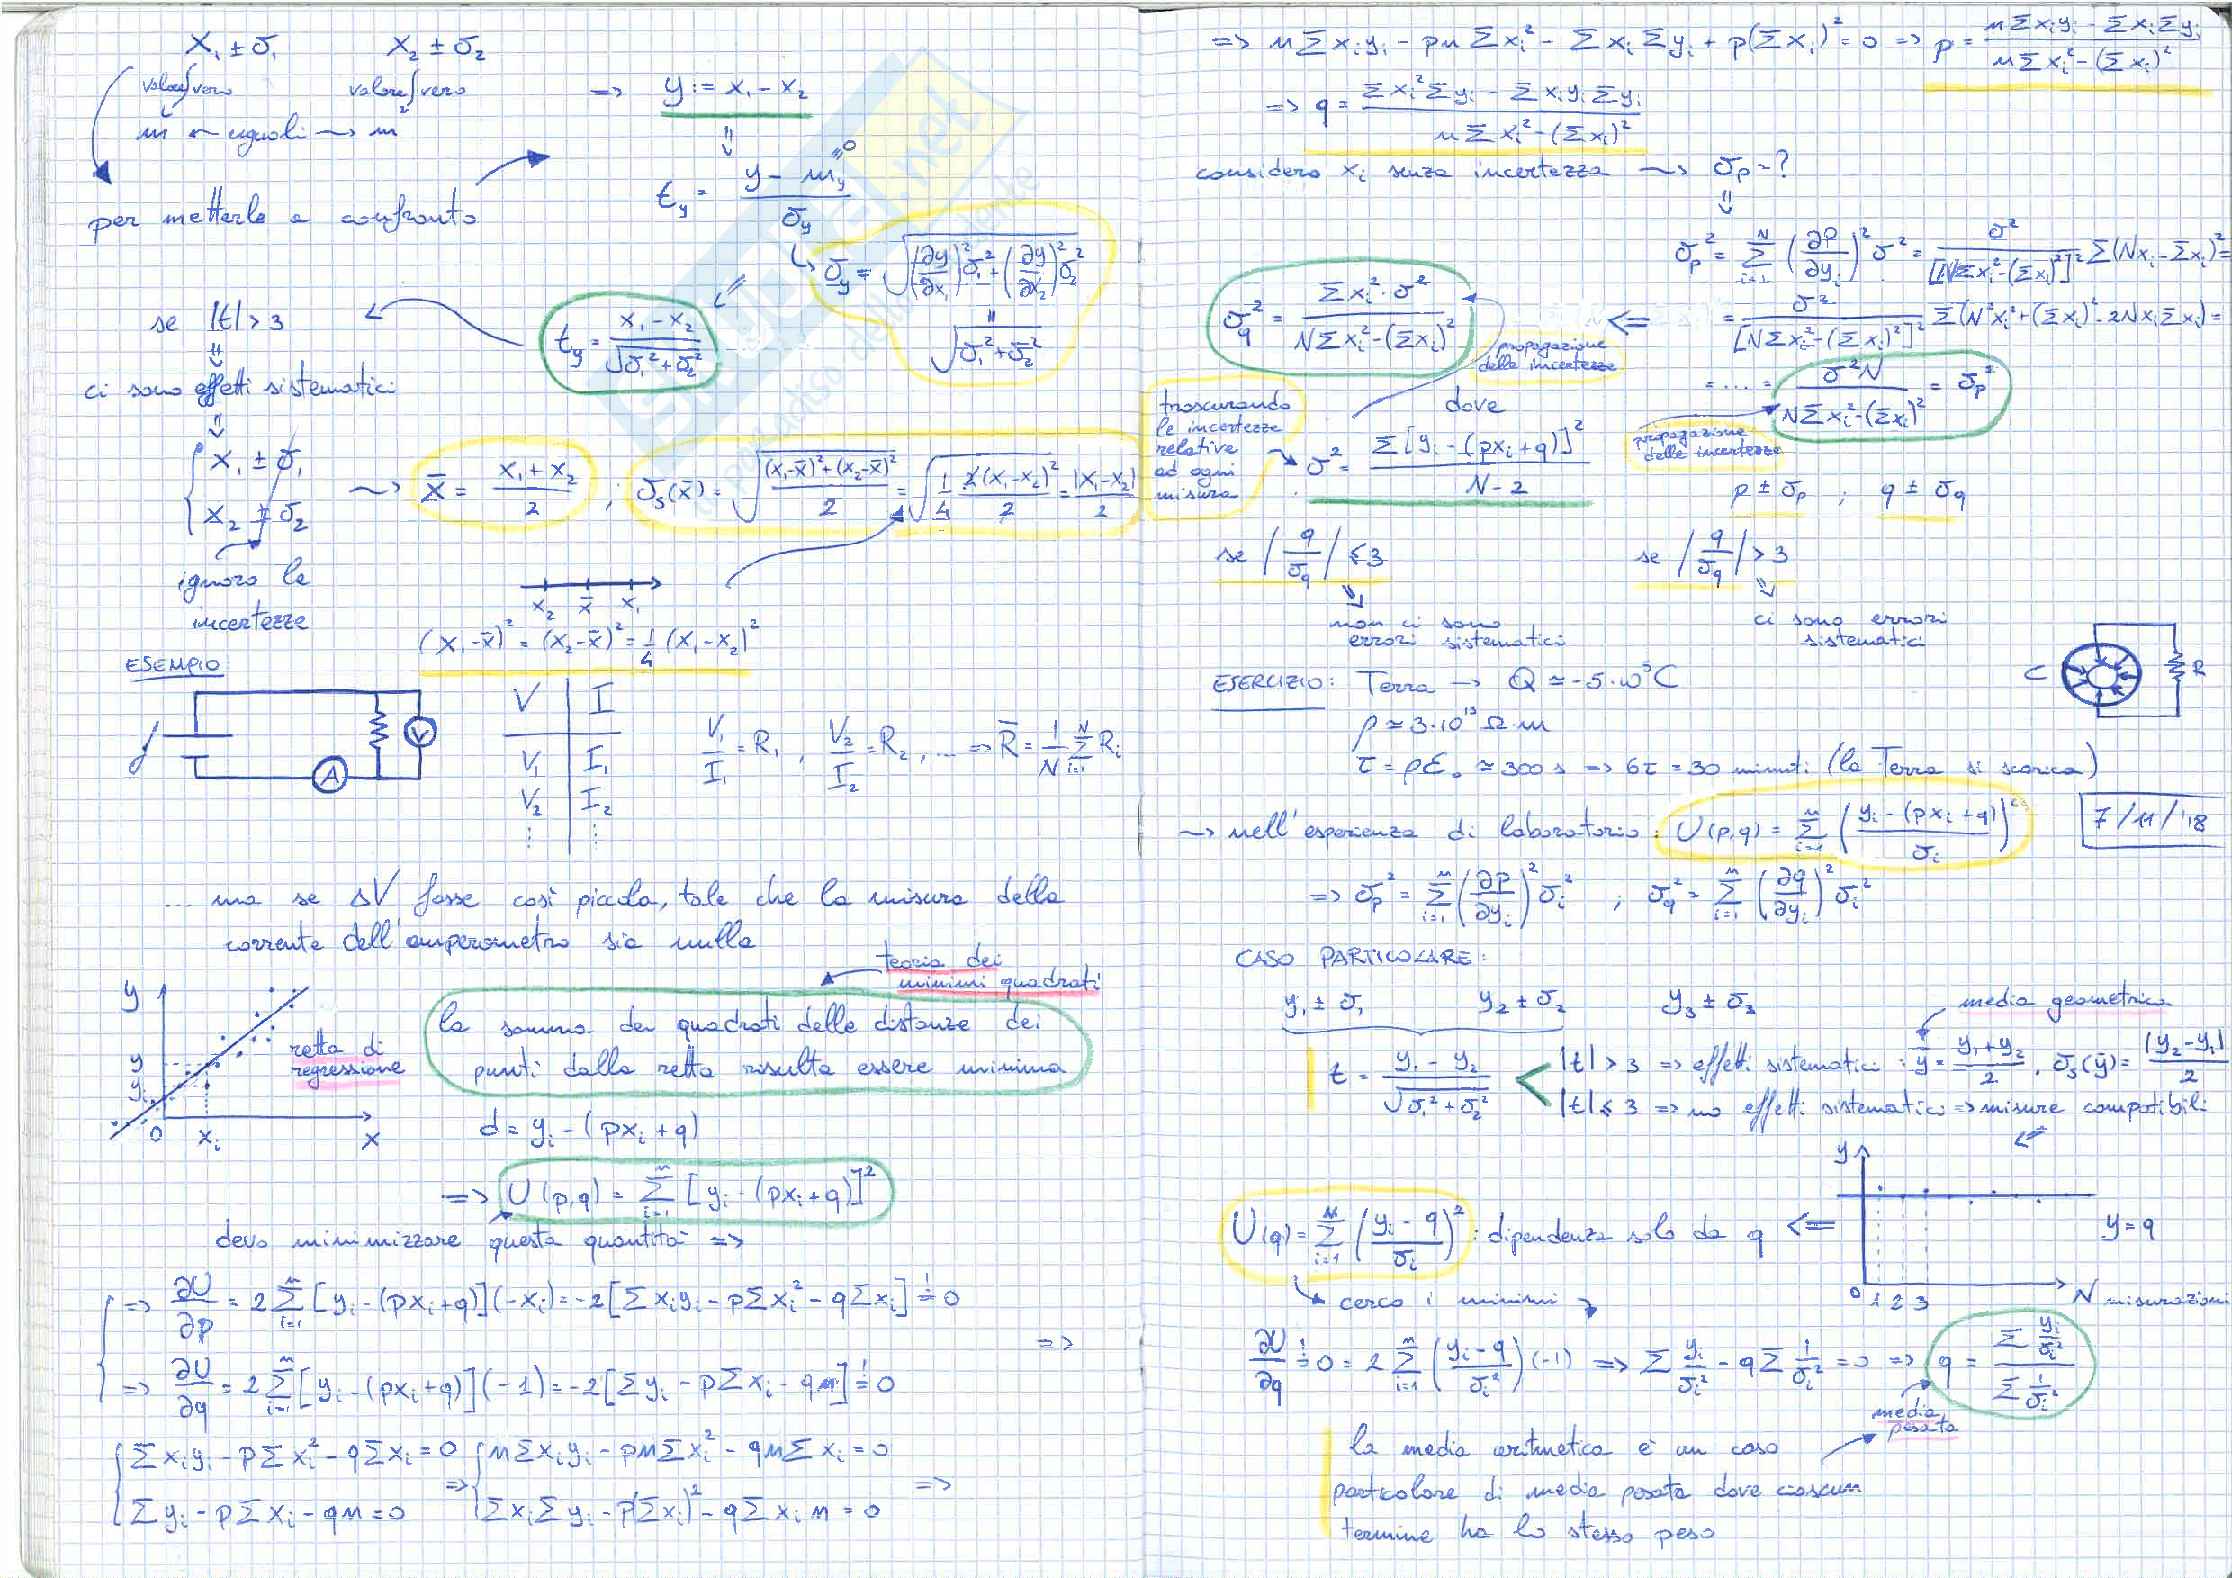 x₁ ± σ₁ x₂ ± σ₂
valore vero valore vero
m ← uguali → m
per metterle a confronto
→ y := x₁ - x₂
t_y = (y - m_y)/σ_y
0
σ_y = √((∂y/∂x₁)² σ₁² + (∂y/∂x₂)² σ₂²)
"
√(σ₁² + σ₂²)
t_y = (x₁ - x₂)/√(σ₁² + σ₂²)
se |t| > 3
⇓
ci sono effetti sistematici
⇓
{ x₁ ± σ₁
x₂ ± σ₂
ignoro le
incertezze
→ x̄ = (x₁ + x₂)/2 ; σ_s(x̄) = √(((x₁-x̄)² + (x₂-x̄)²)/2) = √(1/4 · 2(x₁-x₂)²/2) = |x₁-x₂|/2
x₂ x̄ x₁
(x₁-x̄)² = (x₂-x̄)² = 1/4 (x₁-x₂)²
ESEMPIO
f A V
V I
V₁ I₁
V₂ I₂
⋮ ⋮
V₁/I₁ = R₁ , V₂/I₂ = R₂ , ... ⇒ R̄ = 1/N Σ_{i=1}^{N} R_i
... ma se ΔV fosse così piccola, tale che la misura della
corrente dell'amperometro sia nulla
teoria dei
minimi quadrati
la somma dei quadrati delle distanze dei
punti dalla retta risulta essere minima
y
y
y_i
0 x_i x
retta di
regressione
d = y_i - (px_i + q)
⇒ U(p,q) = Σ_{i=1}^{n} [y_i - (px_i + q)]²
devo minimizzare questa quantità ⇒
{ ⇒ ∂U/∂p = 2 Σ_{i=1}^{n} [y_i - (px_i + q)](-x_i) = -2[Σx_iy_i - pΣx_i² - qΣx_i] != 0
⇒
⇒ ∂U/∂q = 2 Σ_{i=1}^{n} [y_i - (px_i + q)](-1) = -2[Σy_i - pΣx_i - qn] != 0
{ Σx_iy_i - pΣx_i² - qΣx_i = 0 ⇒ { nΣx_iy_i - pnΣx_i² - qnΣx_i = 0 ⇒
Σy_i - pΣx_i - qn = 0 Σx_iΣy_i - p(Σx_i)² - qΣx_i n = 0
⇒ nΣx_iy_i - pnΣx_i² - Σx_iΣy_i + p(Σx_i)² = 0 ⇒ p = (nΣx_iy_i - Σx_iΣy_i)/(nΣx_i² - (Σx_i)²)
⇒ q = (Σx_i²Σy_i - Σx_iy_iΣy_i)/(nΣx_i² - (Σx_i)²)
considero x_i senza incertezza → σ_p = ?
⇓
σ_p² = Σ_{i=1}^{N} (∂p/∂y_i)² σ² = σ²/[NΣx_i² - (Σx_i)²]² Σ(Nx_i - Σx_i)² =
= σ²/[NΣx_i² - (Σx_i)²]² Σ(N²x_i² + (Σx_i)² - 2Nx_iΣx_i) =
= .... = σ²N/(NΣx_i² - (Σx_i)²) = σ_p²
propagazione
delle incertezze
σ_q² = Σx_i²·σ²/(NΣx_i² - (Σx_i)²) ⇐
propagazione
delle incertezze
trascurando
le incertezze
relative
ad ogni
misura
dove
σ² = Σ[y_i - (px_i + q)]²/(N - 2)
p ± σ_p ; q ± σ_q
se |q/σ_q| ≤ 3 se |q/σ_q| > 3
non ci sono
errori sistematici
ci sono errori
sistematici
C R
ESERCIZIO: Terra → Q ≃ -5·10⁵ C
ρ ≃ 3·10¹³ Ω·m
τ = ρε₀ ≃ 300 s ⇒ 6τ = 30 minuti (la Terra si scarica)
7/11/'18
→ nell'esperienza di laboratorio: U(p,q) = Σ_{i=1}^{n} ((y_i - (px_i + q))/σ_i)²
⇒ σ_p² = Σ_{i=1}^{n} (∂p/∂y_i)² σ_i² ; σ_q² = Σ_{i=1}^{n} (∂q/∂y_i)² σ_i²
CASO PARTICOLARE:
y₁ ± σ₁ y₂ ± σ₂ y₃ ± σ₃
media geometrica
t = (y₁ - y₂)/√(σ₁² + σ₂²) < |t| > 3 ⇒ effetti sistematici: ȳ = (y₁ + y₂)/2 , σ_s(ȳ) = |y₂ - y₁|/2
|t| ≤ 3 ⇒ no effetti sistematici ⇒ misure compatibili
y
y = q
0 1 2 3 N misurazioni
U(q) = Σ_{i=1}^{N} ((y_i - q)/σ_i)² : dipendenza solo da q ⇐
cerco i minimi
∂U/∂q != 0 = 2 Σ_{i=1}^{n} ((y_i - q)/σ_i²)(-1) ⇒ Σ y_i/σ_i² - qΣ 1/σ_i² = 0 ⇒ q = (Σ y_i/σ_i²)/(Σ 1/σ_i²)
media
pesata
la media aritmetica è un caso
particolare di media pesata dove ciascun
termine ha lo stesso peso